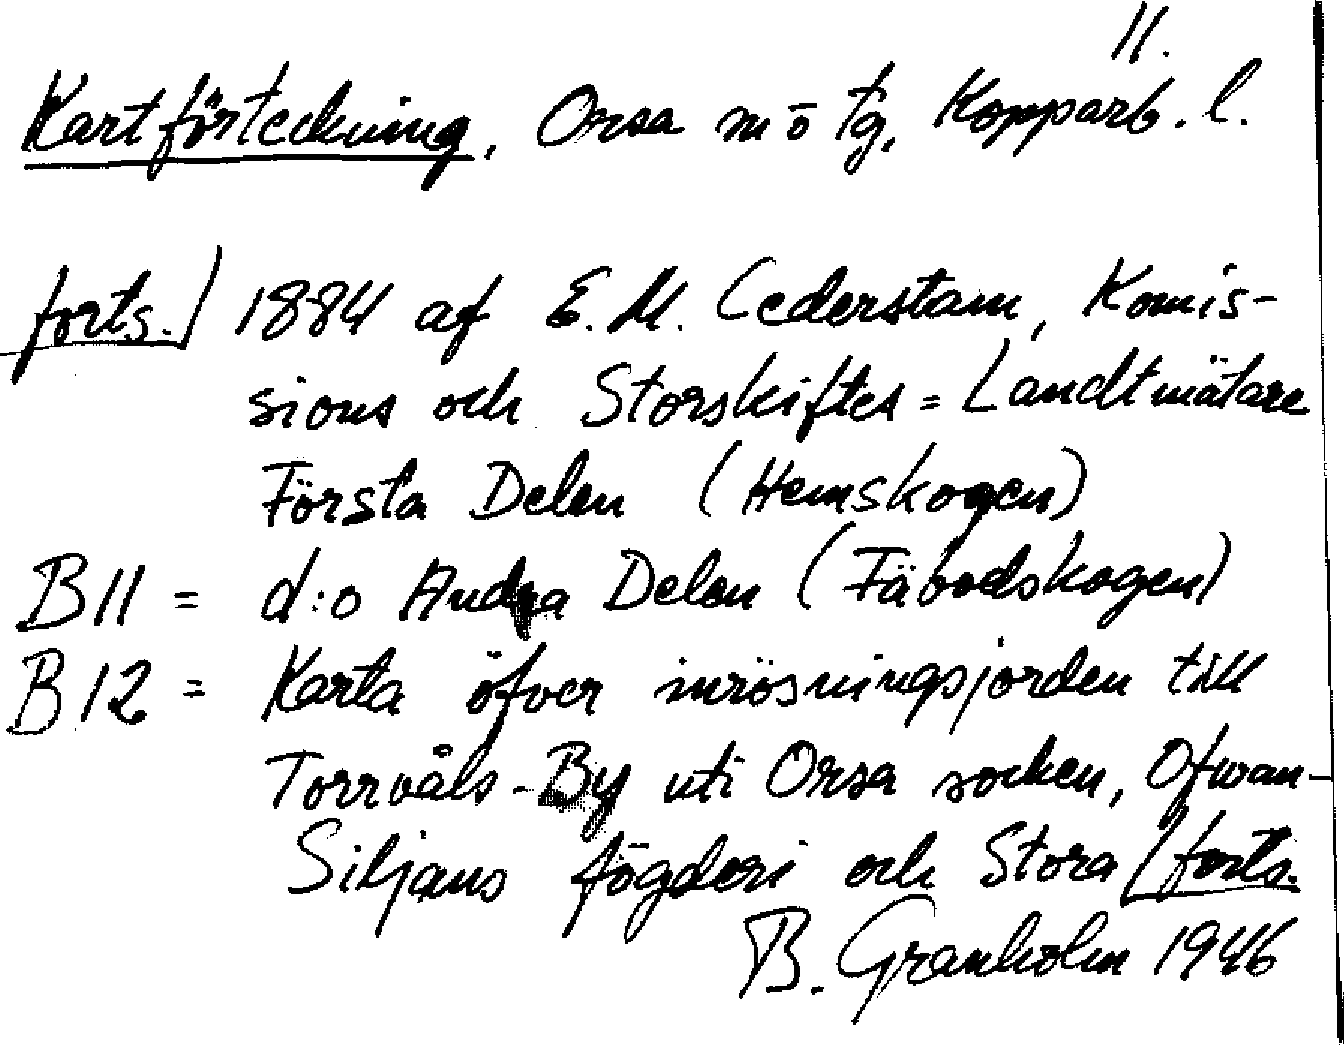 11.
Kartförteckning. Orsa m ō tg. Kopparb. l.
forts. 1884 af E. M. Cederstam, Komis-
sions och Storskiftes = Landtmätare
Första Delen (Hemskogen)
B11 = d:o Andra Delen (Fäbodskogen)
B12 = Karta öfver inrösningsjorden till
Torrvåls-By uti Orsa socken, Ofwan-
Siljans fögderi och Stora forts.
B. Granholm 1946